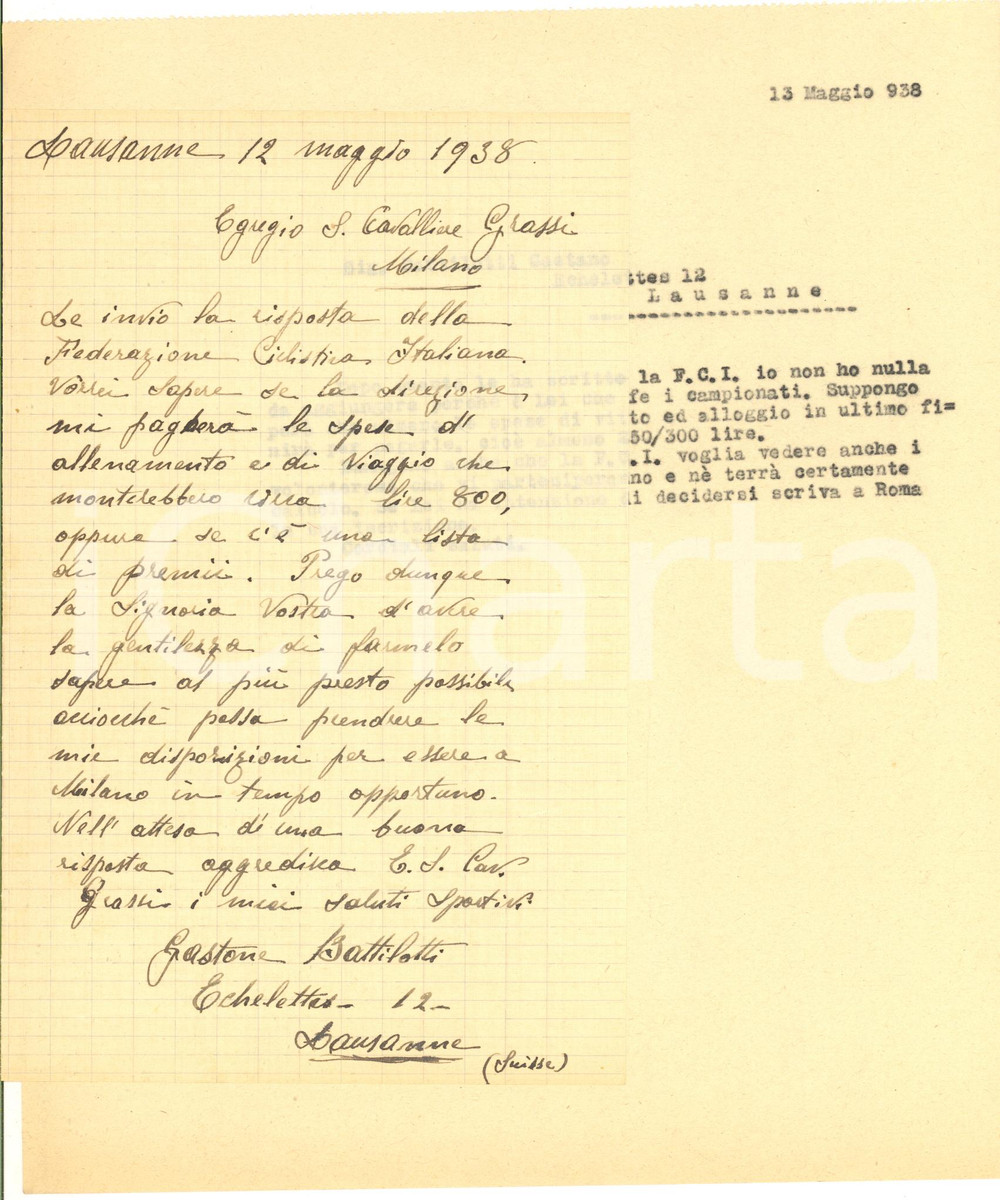 13 Maggio 938
Lausanne 12 maggio 1938.
Egregio S. Cavalliere Grassi
Milano
Le invio la risposta della
Federazione Ciclistica Italiana.
Vorrei sapere se la diregione
mi pagherà le spese d'
allenamento e di viaggio che
monterebbero circa lire 800,
oppure se c'è una lista
di premii. Prego dunque
la Signoria Vostra d'avere
la gentilezza di farmelo
sapere al più presto possibile
acciocchè possa prendrere le
mie disposizioni per essere a
Milano in tempo opportuno.
Nell' attesa d'una buona
risposta aggredisca E. S. Cav.
Grassi i miei saluti sportivi
Gastone Battilotti
Echelettes - 12 -
Lausanne
(Suisse)
ttes 12
Lausanne
la F.C.I. io non ho nulla
fe i campionati. Suppongo
to ed alloggio in ultimo fi=
50/300 lire.
.I. voglia vedere anche i
no e nè terrà certamente
di decidersi scriva a Roma
charta